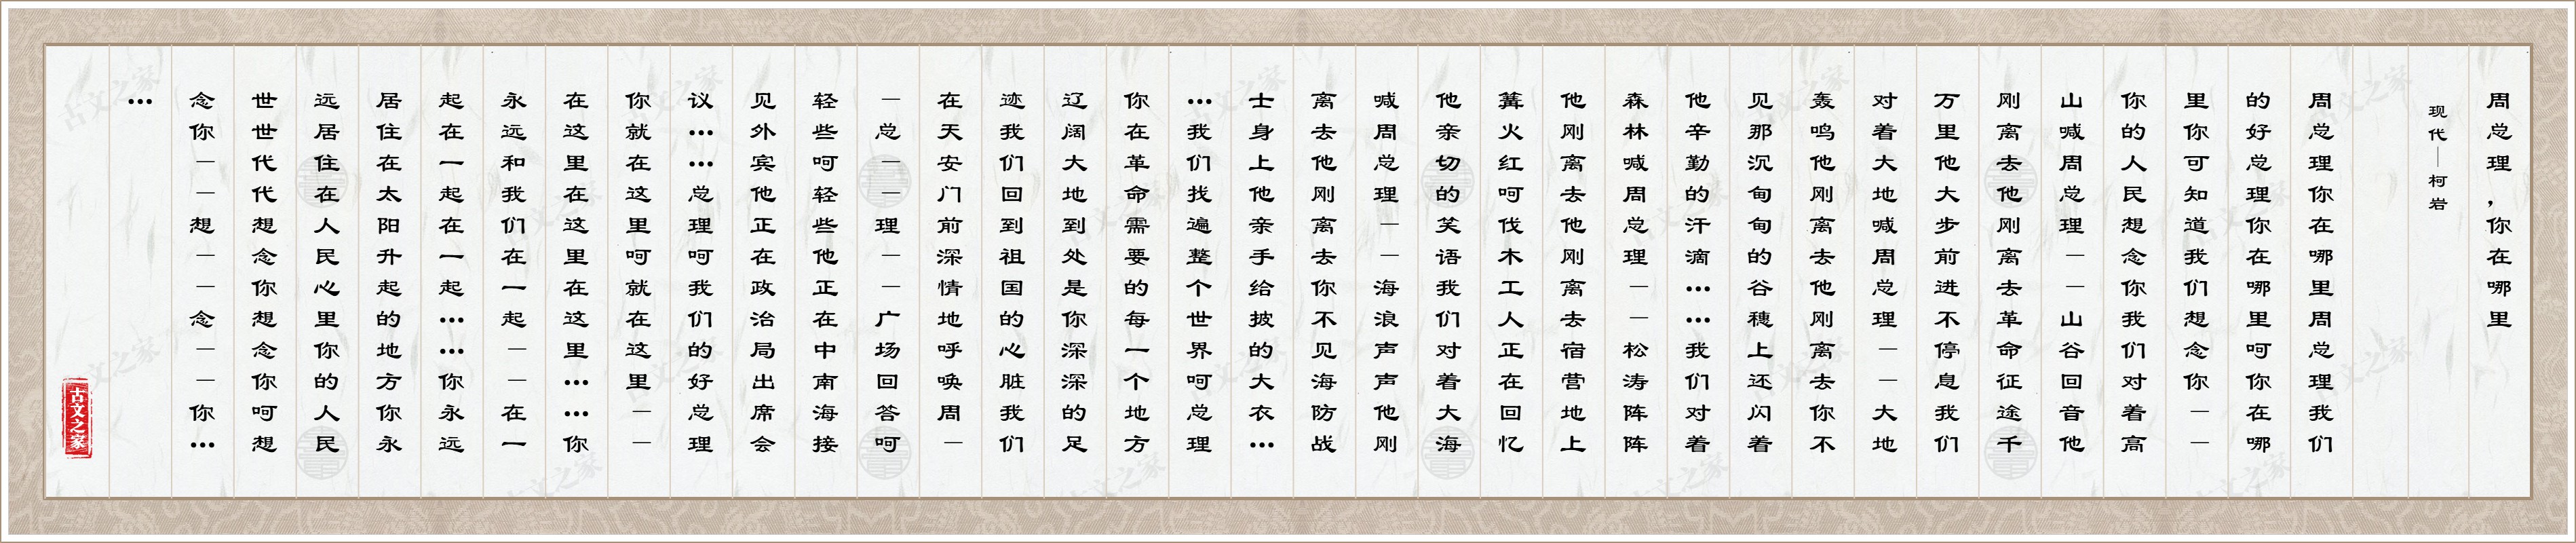 周总理，你在哪里
现代—柯岩
周总理你在哪里周总理我们
的好总理你在哪里呵你在哪
里你可知道我们想念你——
你的人民想念你我们对着高
山喊周总理——山谷回音他
刚离去他刚离去革命征途千
万里他大步前进不停息我们
对着大地喊周总理——大地
轰鸣他刚离去他刚离去你不
见那沉甸甸的谷穗上还闪着
他辛勤的汗滴……我们对着
森林喊周总理——松涛阵阵
他刚离去他刚离去宿营地上
篝火红呵伐木工人正在回忆
他亲切的笑语我们对着大海
喊周总理——海浪声声他刚
离去他刚离去你不见海防战
士身上他亲手给披的大衣…
…我们找遍整个世界呵总理
你在革命需要的每一个地方
辽阔大地到处是你深深的足
迹我们回到祖国的心脏我们
在天安门前深情地呼唤周—
—总——理——广场回答呵
轻些呵轻些他正在中南海接
见外宾他正在政治局出席会
议……总理呵我们的好总理
你就在这里呵就在这里——
在这里在这里在这里……你
永远和我们在一起——在一
起在一起在一起……你永远
居住在太阳升起的地方你永
远居住在人民心里你的人民
世世代代想念你想念你呵想
念你——想——念——你…
…
古文之家